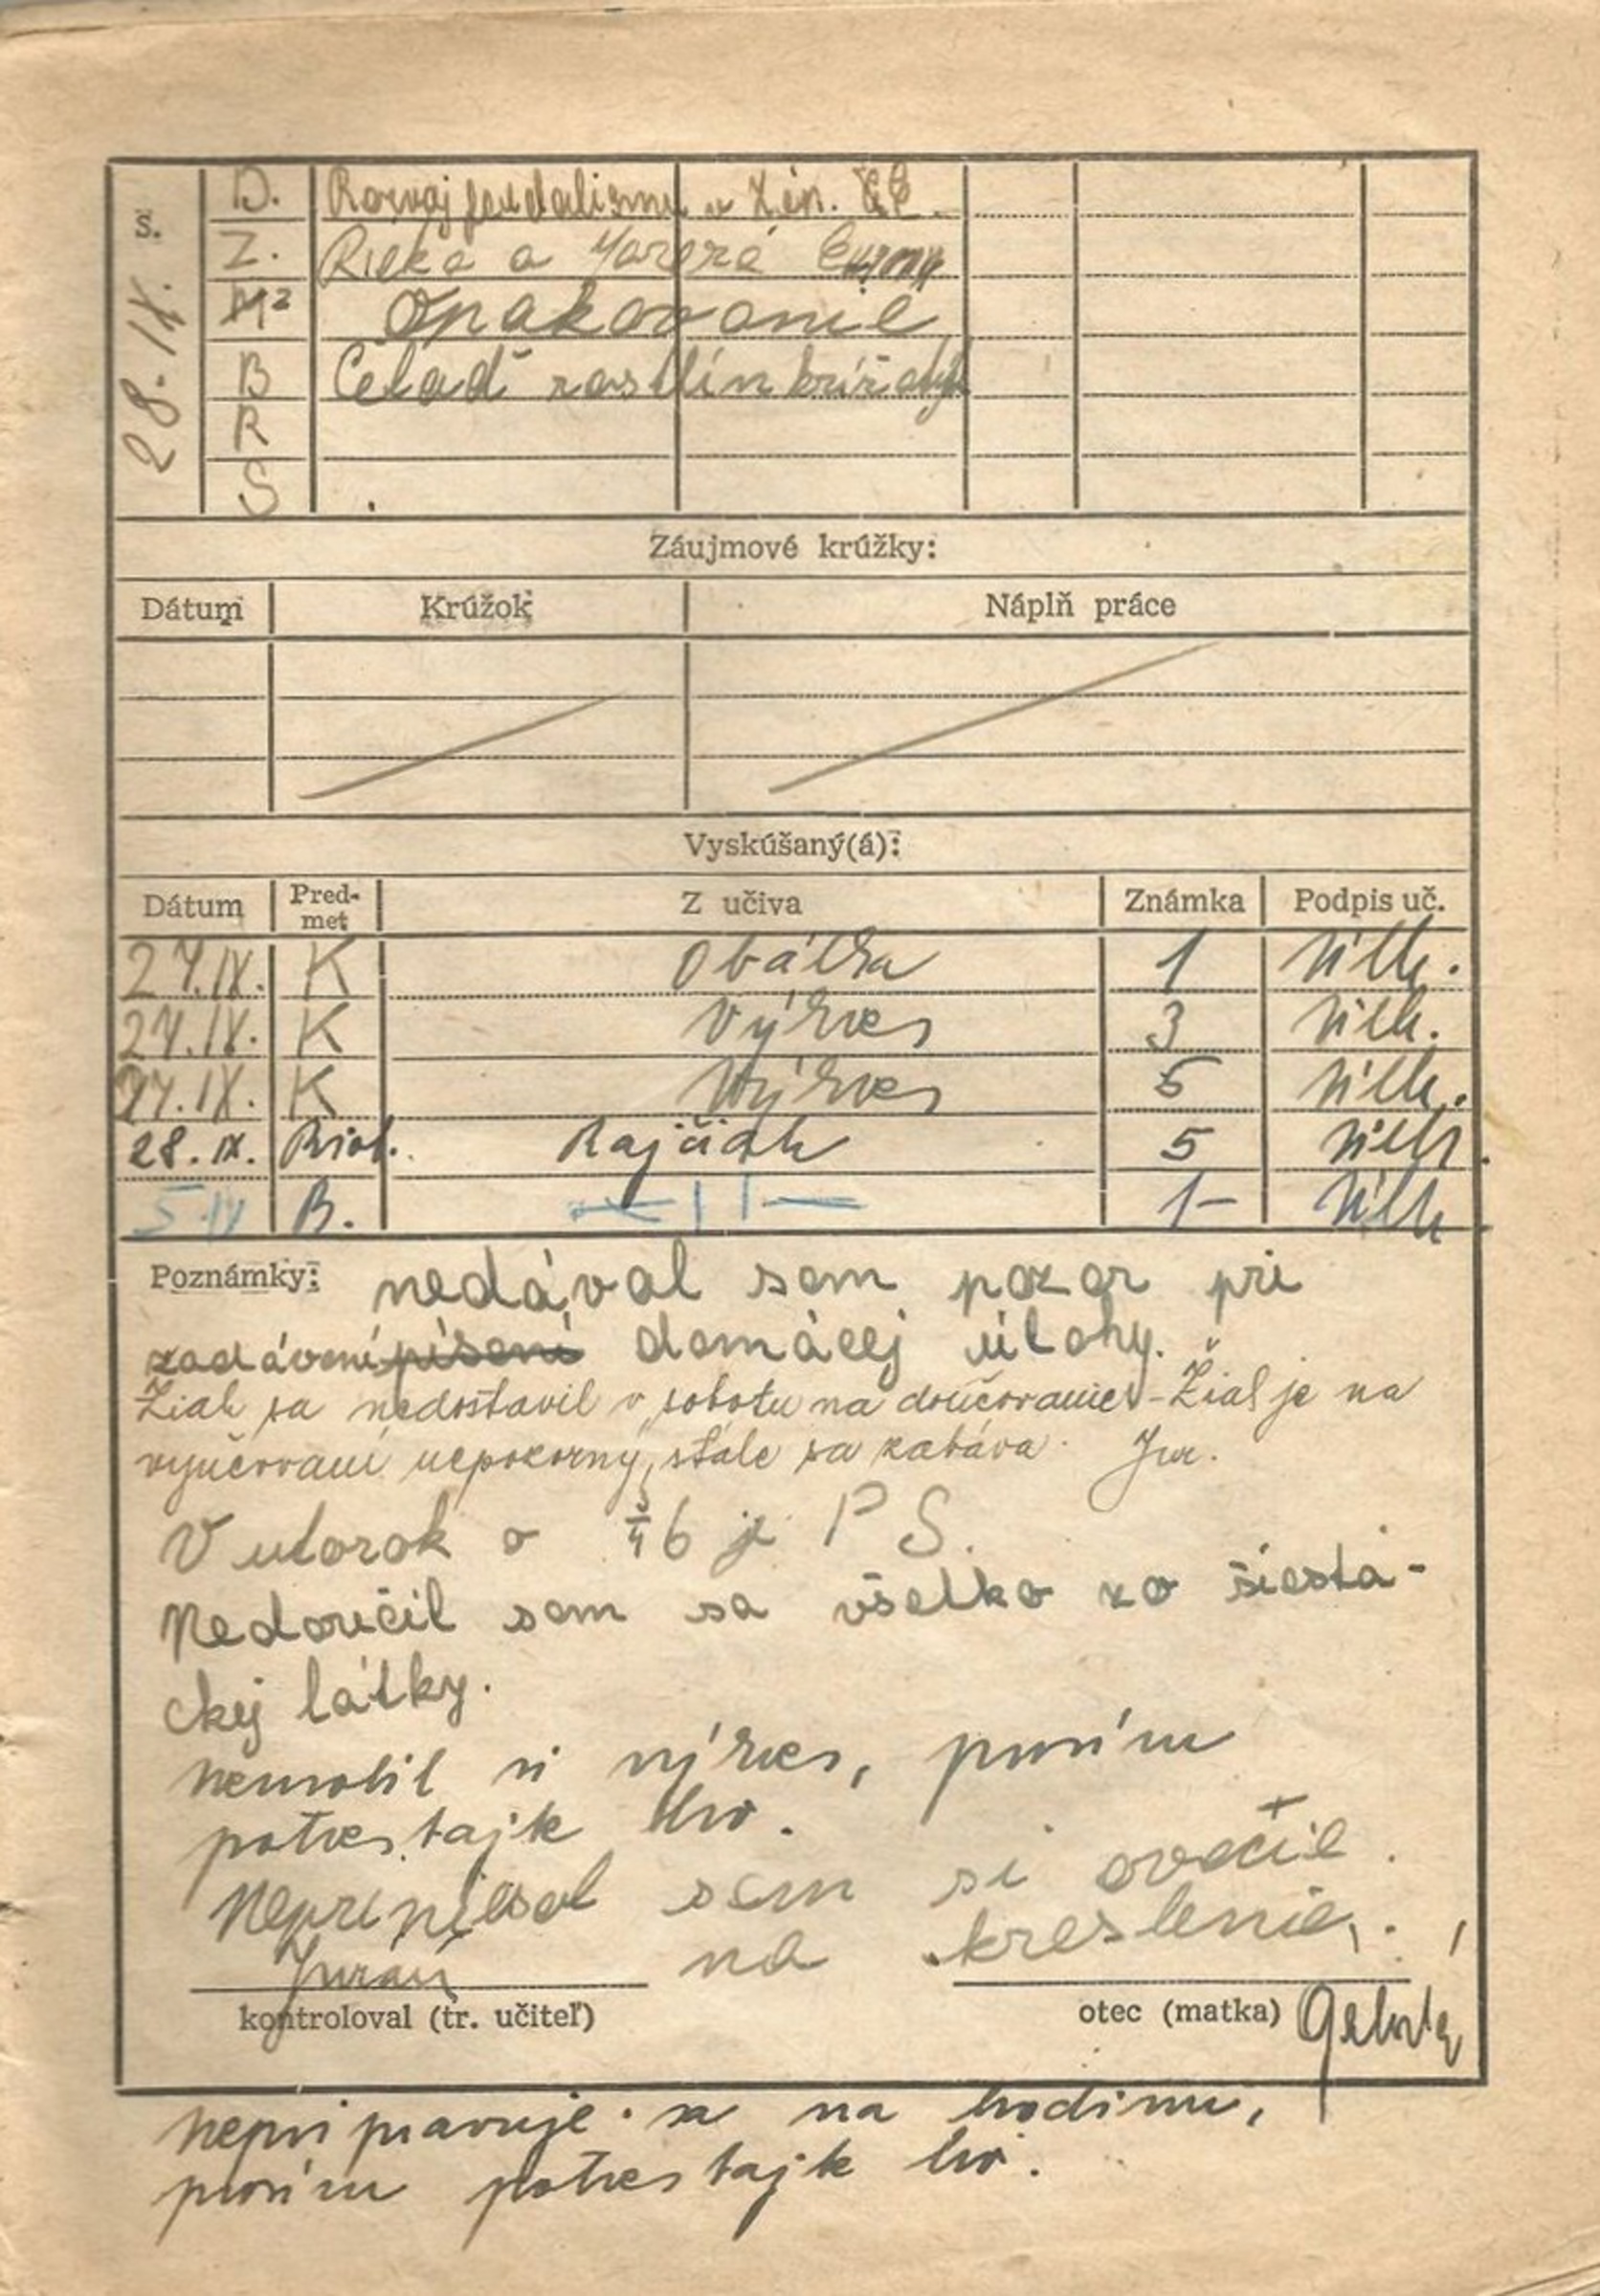 Š. 28. IX.
D. Rozvoj feudalismu v
Z. Rieka a Jazerá
M² Opakovanie
B Čelaď rastlín krížatých
R
S
Záujmové krúžky:
Dátum Krúžok Náplň práce
Vyskúšaný(á):
Dátum Predmet Z učiva Známka Podpis uč.
27.IX. K Obálka 1
27.IX. K Výkres 3
27.IX. K Výkres 5
28.IX. Biol. Rajčiak 5
B. —||— 1-
Poznámky: nedával som pozor pri
zadávení domácej úlohy.
Žiak sa nedostavil v sobotu na doučovanie - Žiak je na
vyučovaní nepozorný, stále sa zabáva. Jur.
V utorok o ¾6 je PS.
Nedoučil som sa všetko zo šiesta-
ckej látky.
Neurobil si výkres, prosím
potrestajte ho.
Nepripísal som si ovocie
na kreslenie.
kontroloval (tr. učiteľ) otec (matka)
Nepripravuje sa na hodinu,
prosím potrestajte ho.